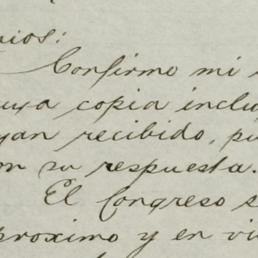 nios:
Confirmo mi
uya copia inclu
yan recibido, pu
on su respuesta.
El Congreso s
proximo y en vi